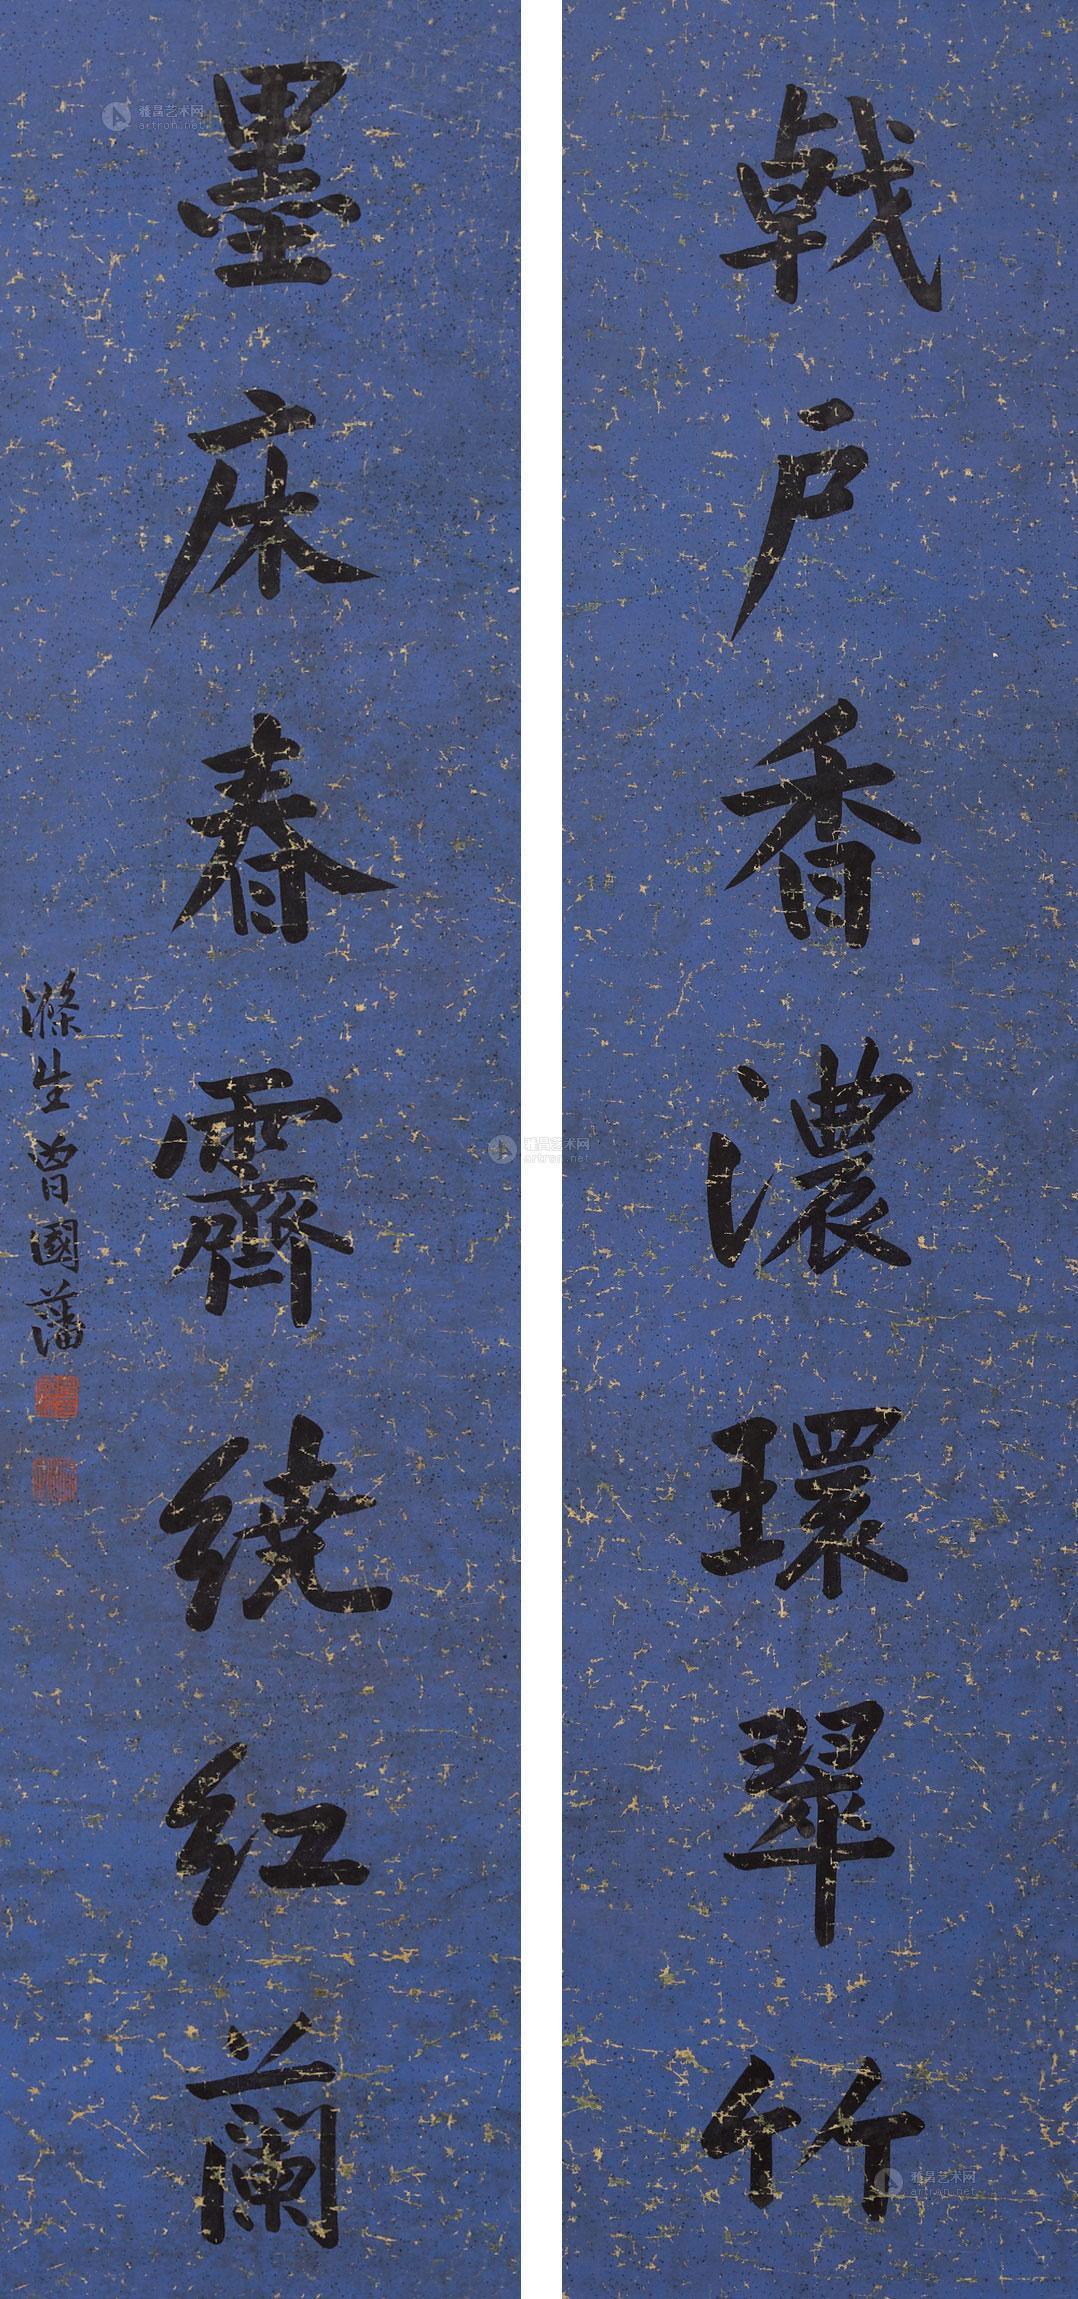 戟户香濃環翠竹
墨床春霽繞红蘭
滌生曾國藩
雅昌艺术网
artron.net
雅昌艺术网
artron.net
雅昌艺术网
artron.net